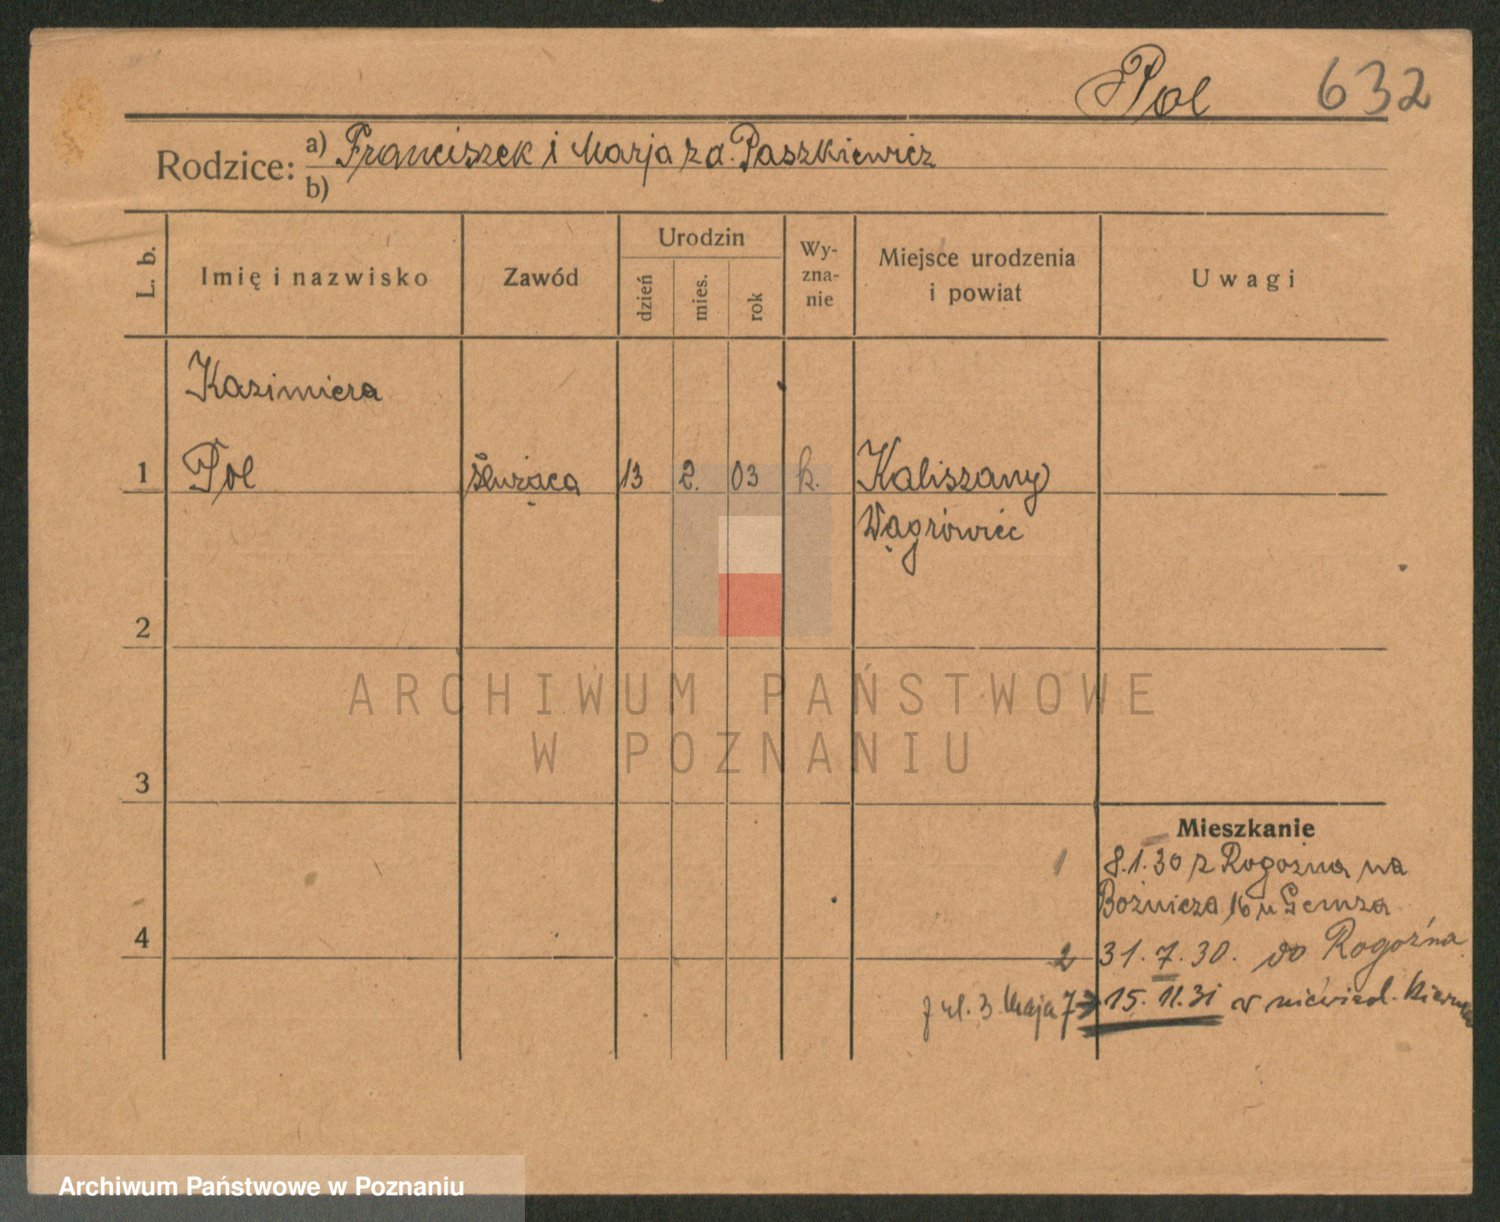 Pol 632
Rodzice: a) Franciszek i Marja z d. Paszkiewicz
b)
L. b.
Imię i nazwisko
Zawód
Urodzin
dzień
mies.
rok
Wy-
zna-
nie
Miejsce urodzenia
i powiat
Uwagi
Kazimiera
1 Pol służąca 13 2. 03 k. Kaliszany
Wągrówiec
2
ARCHIWUM PAŃSTWOWE
W POZNANIU
3
Mieszkanie
1 8.1.30 z Rogoźna na
Bożnicza 16 u Gemza
4
2 31.7.30. do Rogoźna
ul. 3 Maja 7 → 15.11.31 w niewied.
Archiwum Państwowe w Poznaniu